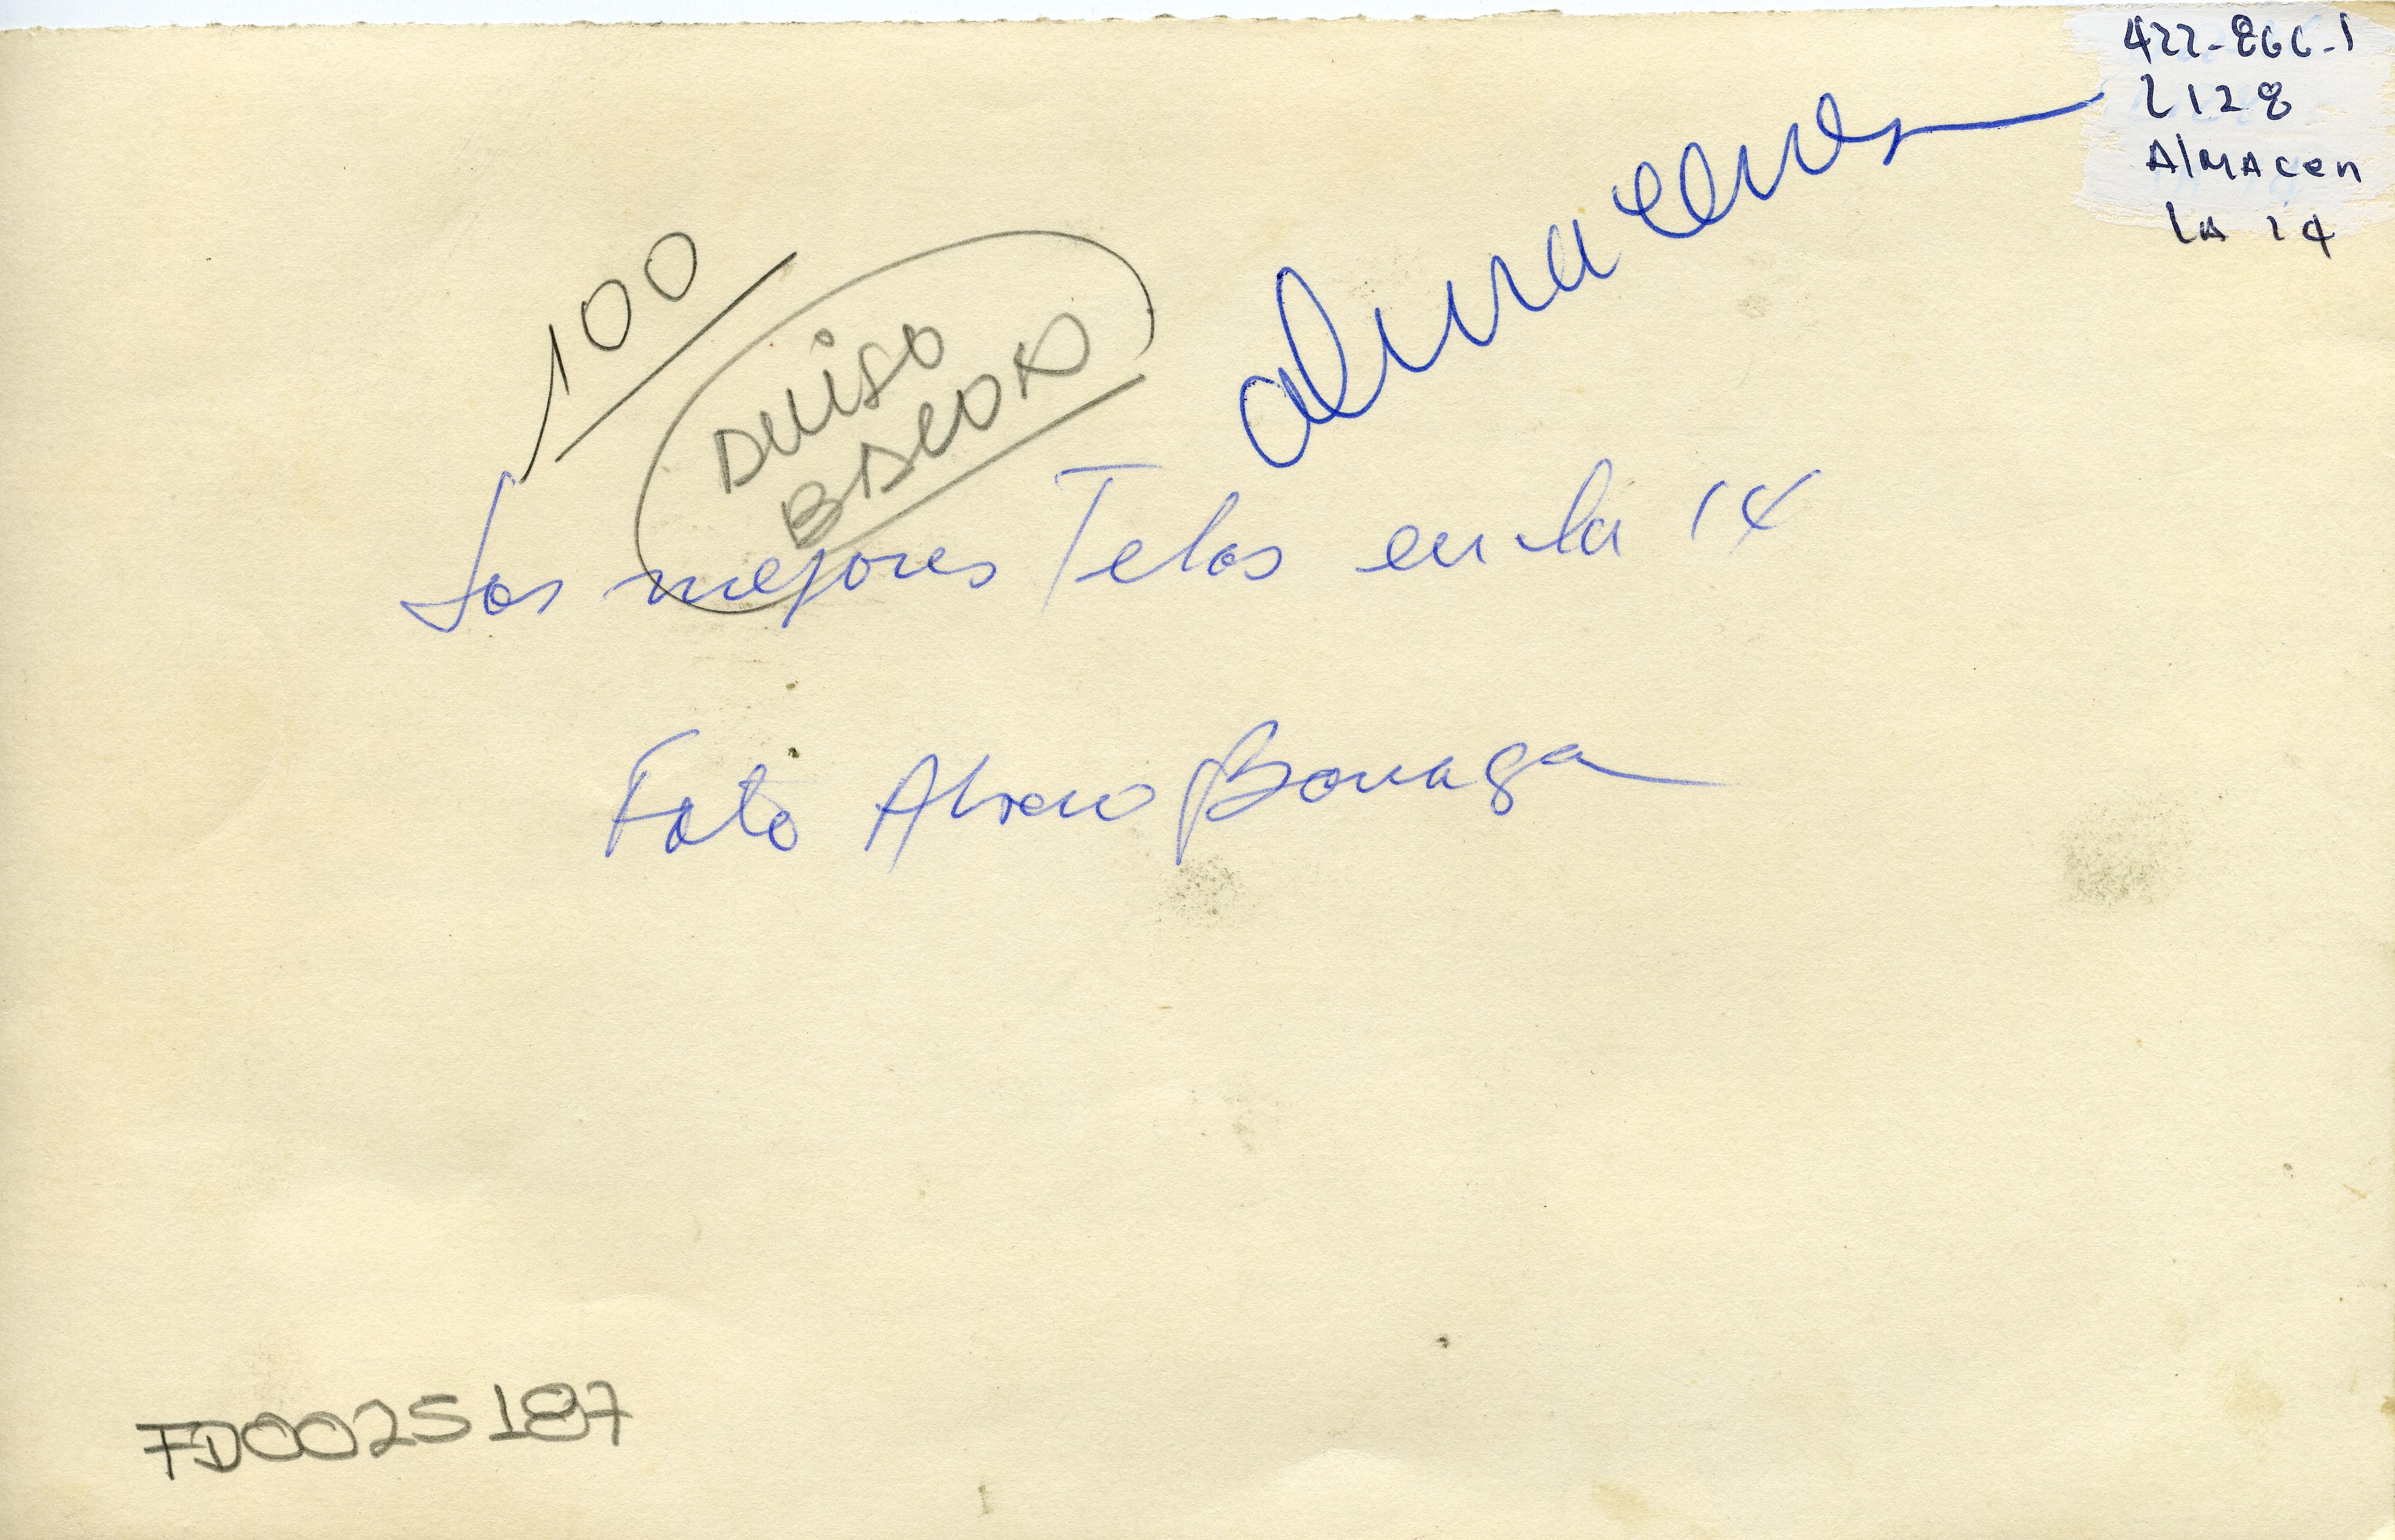 422-866-1
2128
Almacen
LA 14
almacenes
100
Las mejores Telas en la 14
Foto Alvaro
FD0025187